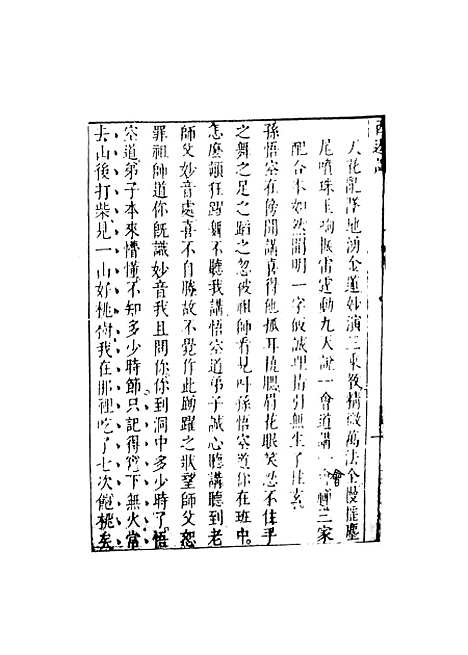 西遊記
天花亂墜地湧金蓮妙演三乘教精微萬法全慢搖麈
尾噴珠玉响振雷霆動九天說一會道講一會禪三家
配合本如然開明一字皈誠理指引無生了性玄
孫悟空在傍聞講喜得他抓耳撓腮眉花眼笑忍不住手
之舞之足之蹈之忽被祖師看見叫孫悟空道你在班中
怎麼顛狂躍舞不聽我講悟空道弟子誠心聽講聽到老
師父妙音處喜不自勝故不覺作此踴躍之狀望師父恕
罪祖師道你既識妙音我且問你你到洞中多少時了悟
空道弟子本來懵懂不知多少時節只記得竈下無火當
去山後打柴見一山好桃樹我在那裡吃了七次飽桃矣